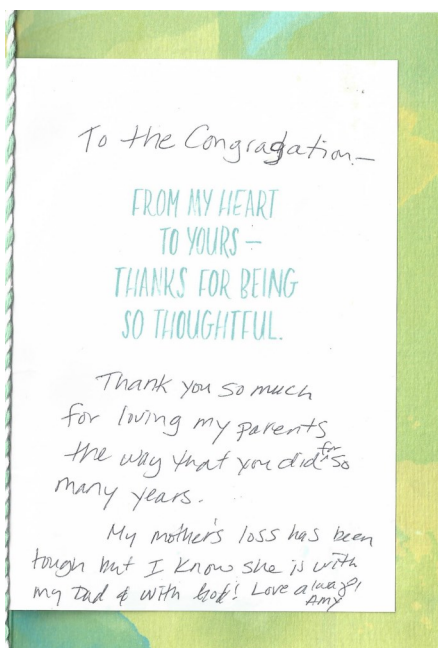 To the Congragation—
FROM MY HEART
TO YOURS—
THANKS FOR BEING
SO THOUGHTFUL.
Thank you so much
for loving my parents
the way that you did for so
many years.
My mother's loss has been
tough but I know she is with
my Dad & with God! Love always,
Amy